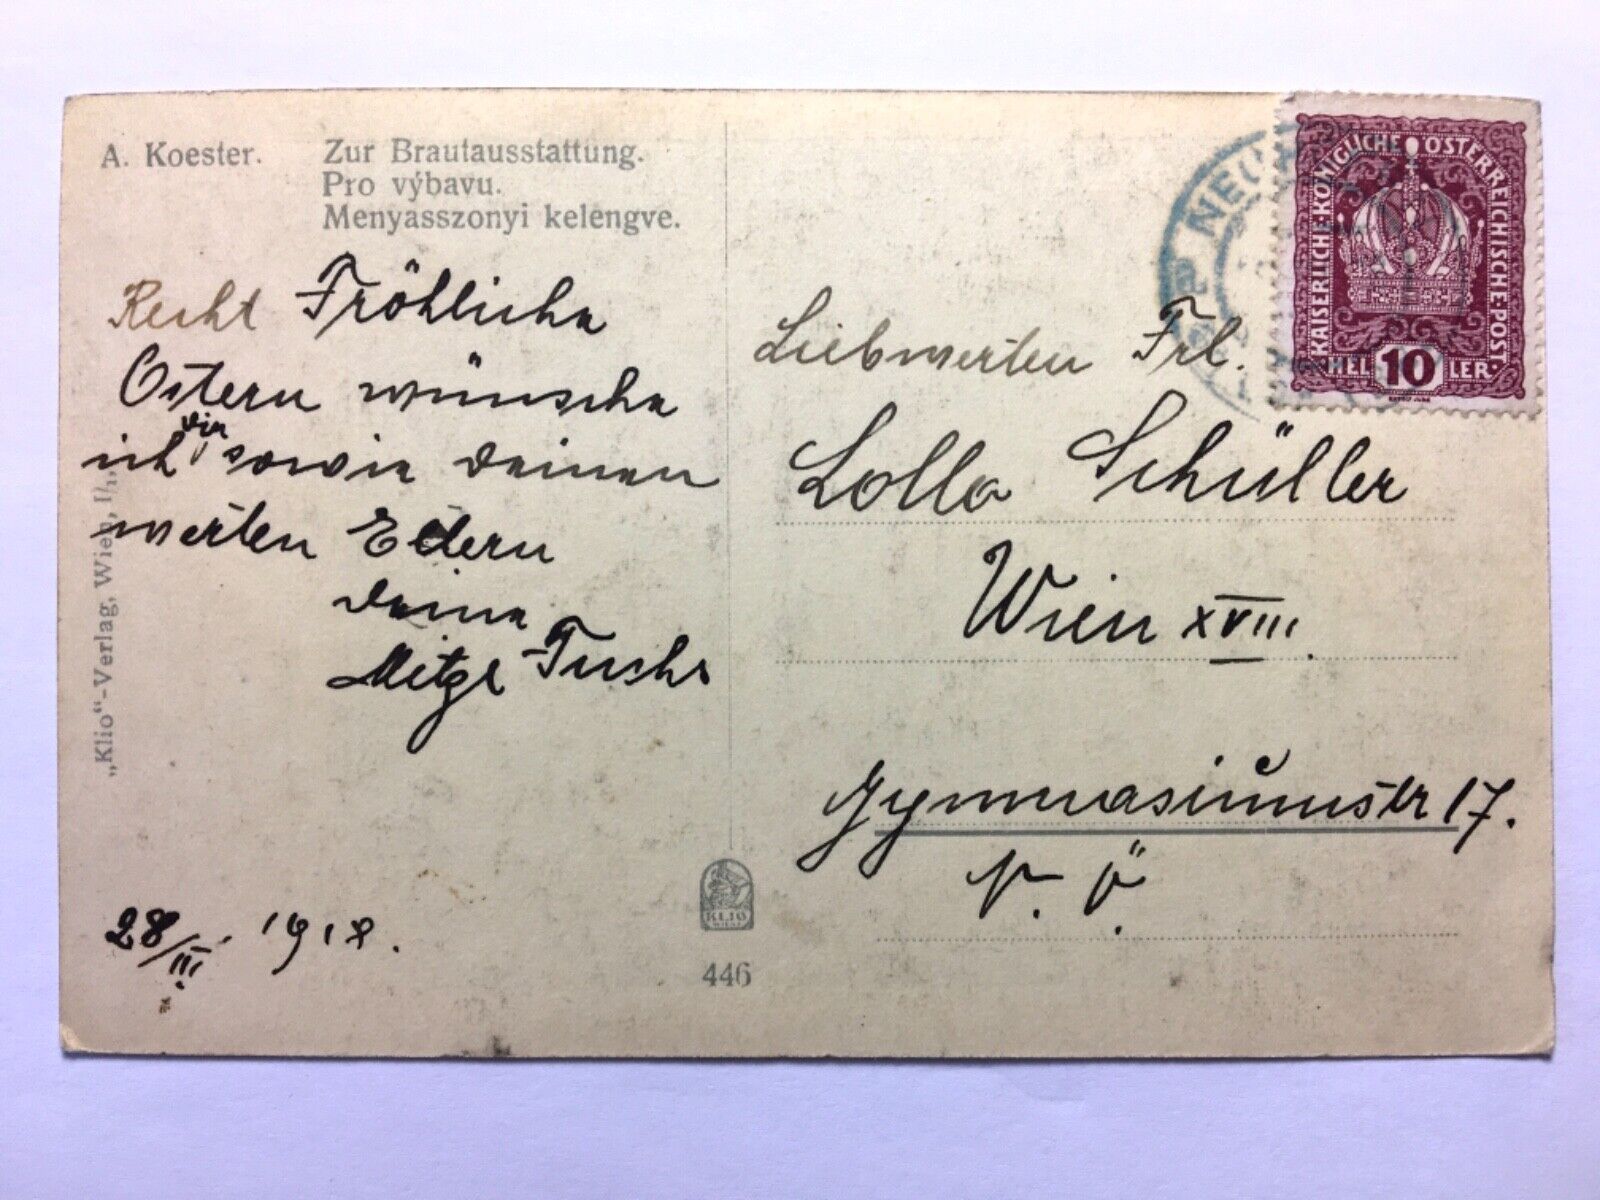 A. Koester. Zur Brautausstattung.
Pro výbavu.
Menyasszonyi kelengye.
Recht Fröhliche
Ostern wünsche
ich dir sowie deinen
werten Eltern
deine
Mitzi Fuchs
28/III. 1918.
"Klio"-Verlag, Wien, I/1
KLIO
WIEN
446
KAISERLICHE KÖNIGLICHE ÖSTERREICHISCHE POST
10
HELLER
Liebwerten Frl.
Lolla Schüller
Wien XVIII.
Gymnasiumstr 17.
N. Ö.